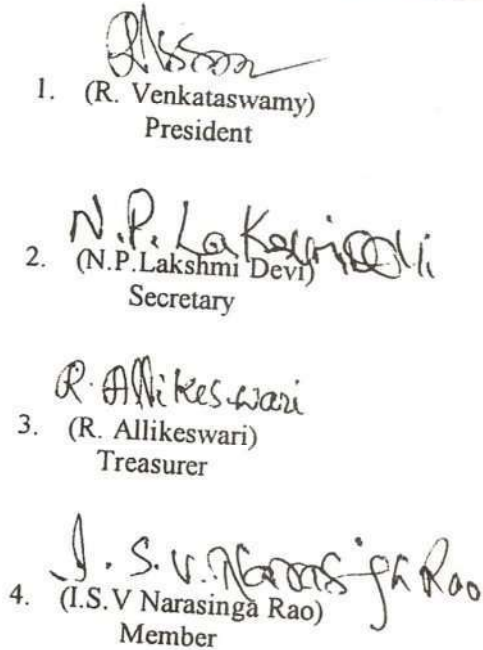 1. (R. Venkataswamy)
President
N.P. Lakshmi Devi
2. (N.P.Lakshmi Devi)
Secretary
R. Allikeswari
3. (R. Allikeswari)
Treasurer
I. S. V. Narasingh Rao
4. (I.S.V Narasinga Rao)
Member